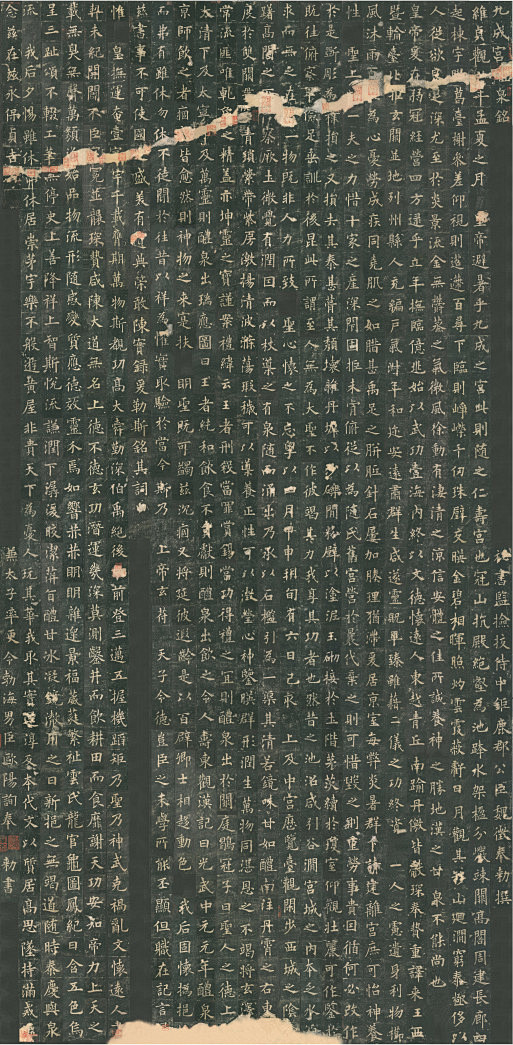 九成宮泉銘 秘書監檢校侍中鉅鹿郡公臣魏徵奉勅撰
維貞觀年孟夏之月皇帝避暑乎九成之宮此則隨之仁壽宮也冠山抗殿絕壑為池跨水架楹分巖竦闕高閣周建長廊四
起棟宇葛臺榭參差仰視則迢遞百尋下臨則崢嶸千仞珠璧交映金碧相暉照灼雲霞蔽虧日月觀其移山迴澗窮泰極侈以
人從欲良足深尤至於炎景流金無鬱蒸之氣微風徐動有淒清之涼信安體之佳所誠養神之勝地漢之甘泉不能尚也
皇帝爰在弱冠經營四方逮乎立年撫臨億兆始以武功壹海內終以文德懷遠人東越青丘南踰丹徼皆獻琛奉贄重譯來王西
暨輪臺北拒玄闕並地列州縣人充編戶氣淑年和邇安遠肅群生咸遂靈貺畢臻雖藉二儀之功終資一人之慮遺身利物櫛
風沐雨為心憂勞成疾同堯肌之如腊甚禹足之胼胝針石屢加腠理猶滯爰居京室每弊炎暑群下請建離宮庶可怡神養
性聖一夫之力惜十家之產深閉固拒未肯俯從以為隨氏舊宮營於曩代棄之則可惜毀之則重勞事貴因循何必改作
於是斲彫為損之又損去其泰甚葺其頹壞雜丹墀以沙礫間粉壁以塗泥玉砌接於土階茅茨續於瓊室仰觀壯麗可作鑒於
既往俯察儉足垂訓於後昆此所謂至人無為大聖不作彼竭其力我享其功者也然昔之池沼咸引谷澗宮城之內本乏水源
求而無之在一物既非人力所致聖心懷之不忘粵以四月甲申朔旬有六日己亥上及中宮歷覽臺觀閑步西城之陰躊
躇高閣之下察厥土微覺有潤因而以杖導之有泉隨而涌出乃承以石檻引為一渠其清若鏡味甘如醴南注丹霄之右東流
度於雙闕青瑣縈帶紫房激揚清波滌蕩瑕穢可以導養正性可以澂瑩心神鑒映群形潤生萬物同湛恩之不竭將玄澤
常流匪唯乾精蓋亦坤靈之寶謹案禮緯云王者刑殺當罪賞錫當功得禮之宜則醴泉出於闕庭鶡冠子曰聖人之德上
太清下及太寧及萬靈則醴泉出瑞應圖曰王者純和飲食不貢獻則醴泉出飲之令人壽東觀漢記曰光武中元元年醴泉
京師飲之者痼皆愈然則神物之來寔扶明聖既可蠲茲沉痼又將延彼遐齡是以百辟卿士相趨動色我后固懷撝挹
弗有雖休勿休不徒聞於往昔以祥為懼實取驗於當今斯乃上帝玄符天子令德豈臣之末學所能丕顯但職在記言
茲書事不可使國之盛美有遺典策敢陳實錄爰勒斯銘其詞曰
惟皇撫運奄壹宇千載膺期萬物斯覩功高大舜勤深伯禹絕後前登三邁五握機蹈矩乃聖乃神武克禍亂文懷遠人
契未紀開闢不臣冠冕並襲琛贄咸陳大道無名上德不德玄功潛運幾深莫測鑿井而飲耕田而食靡謝天功安知帝力上天之
載無臭無聲萬類資始品物流形隨感變質應德效靈介焉如響赫赫明明雜遝景福葳蕤繁祉雲氏龍官龜圖鳳紀日含五色烏
呈三趾頌不輟工筆停史上善降祥上智斯悅流謙潤下潺湲皎潔蓱旨醴甘冰凝鏡澈用之日新挹之無竭道隨時泰慶與泉
流我后夕惕雖休弗休居崇茅宇樂不般遊黃屋非貴天下為憂人玩其華我取其實還淳反本代文以質居高思墜持滿戒溢
念茲在茲永保貞吉 兼太子率更令勃海男臣歐陽詢奉勅書